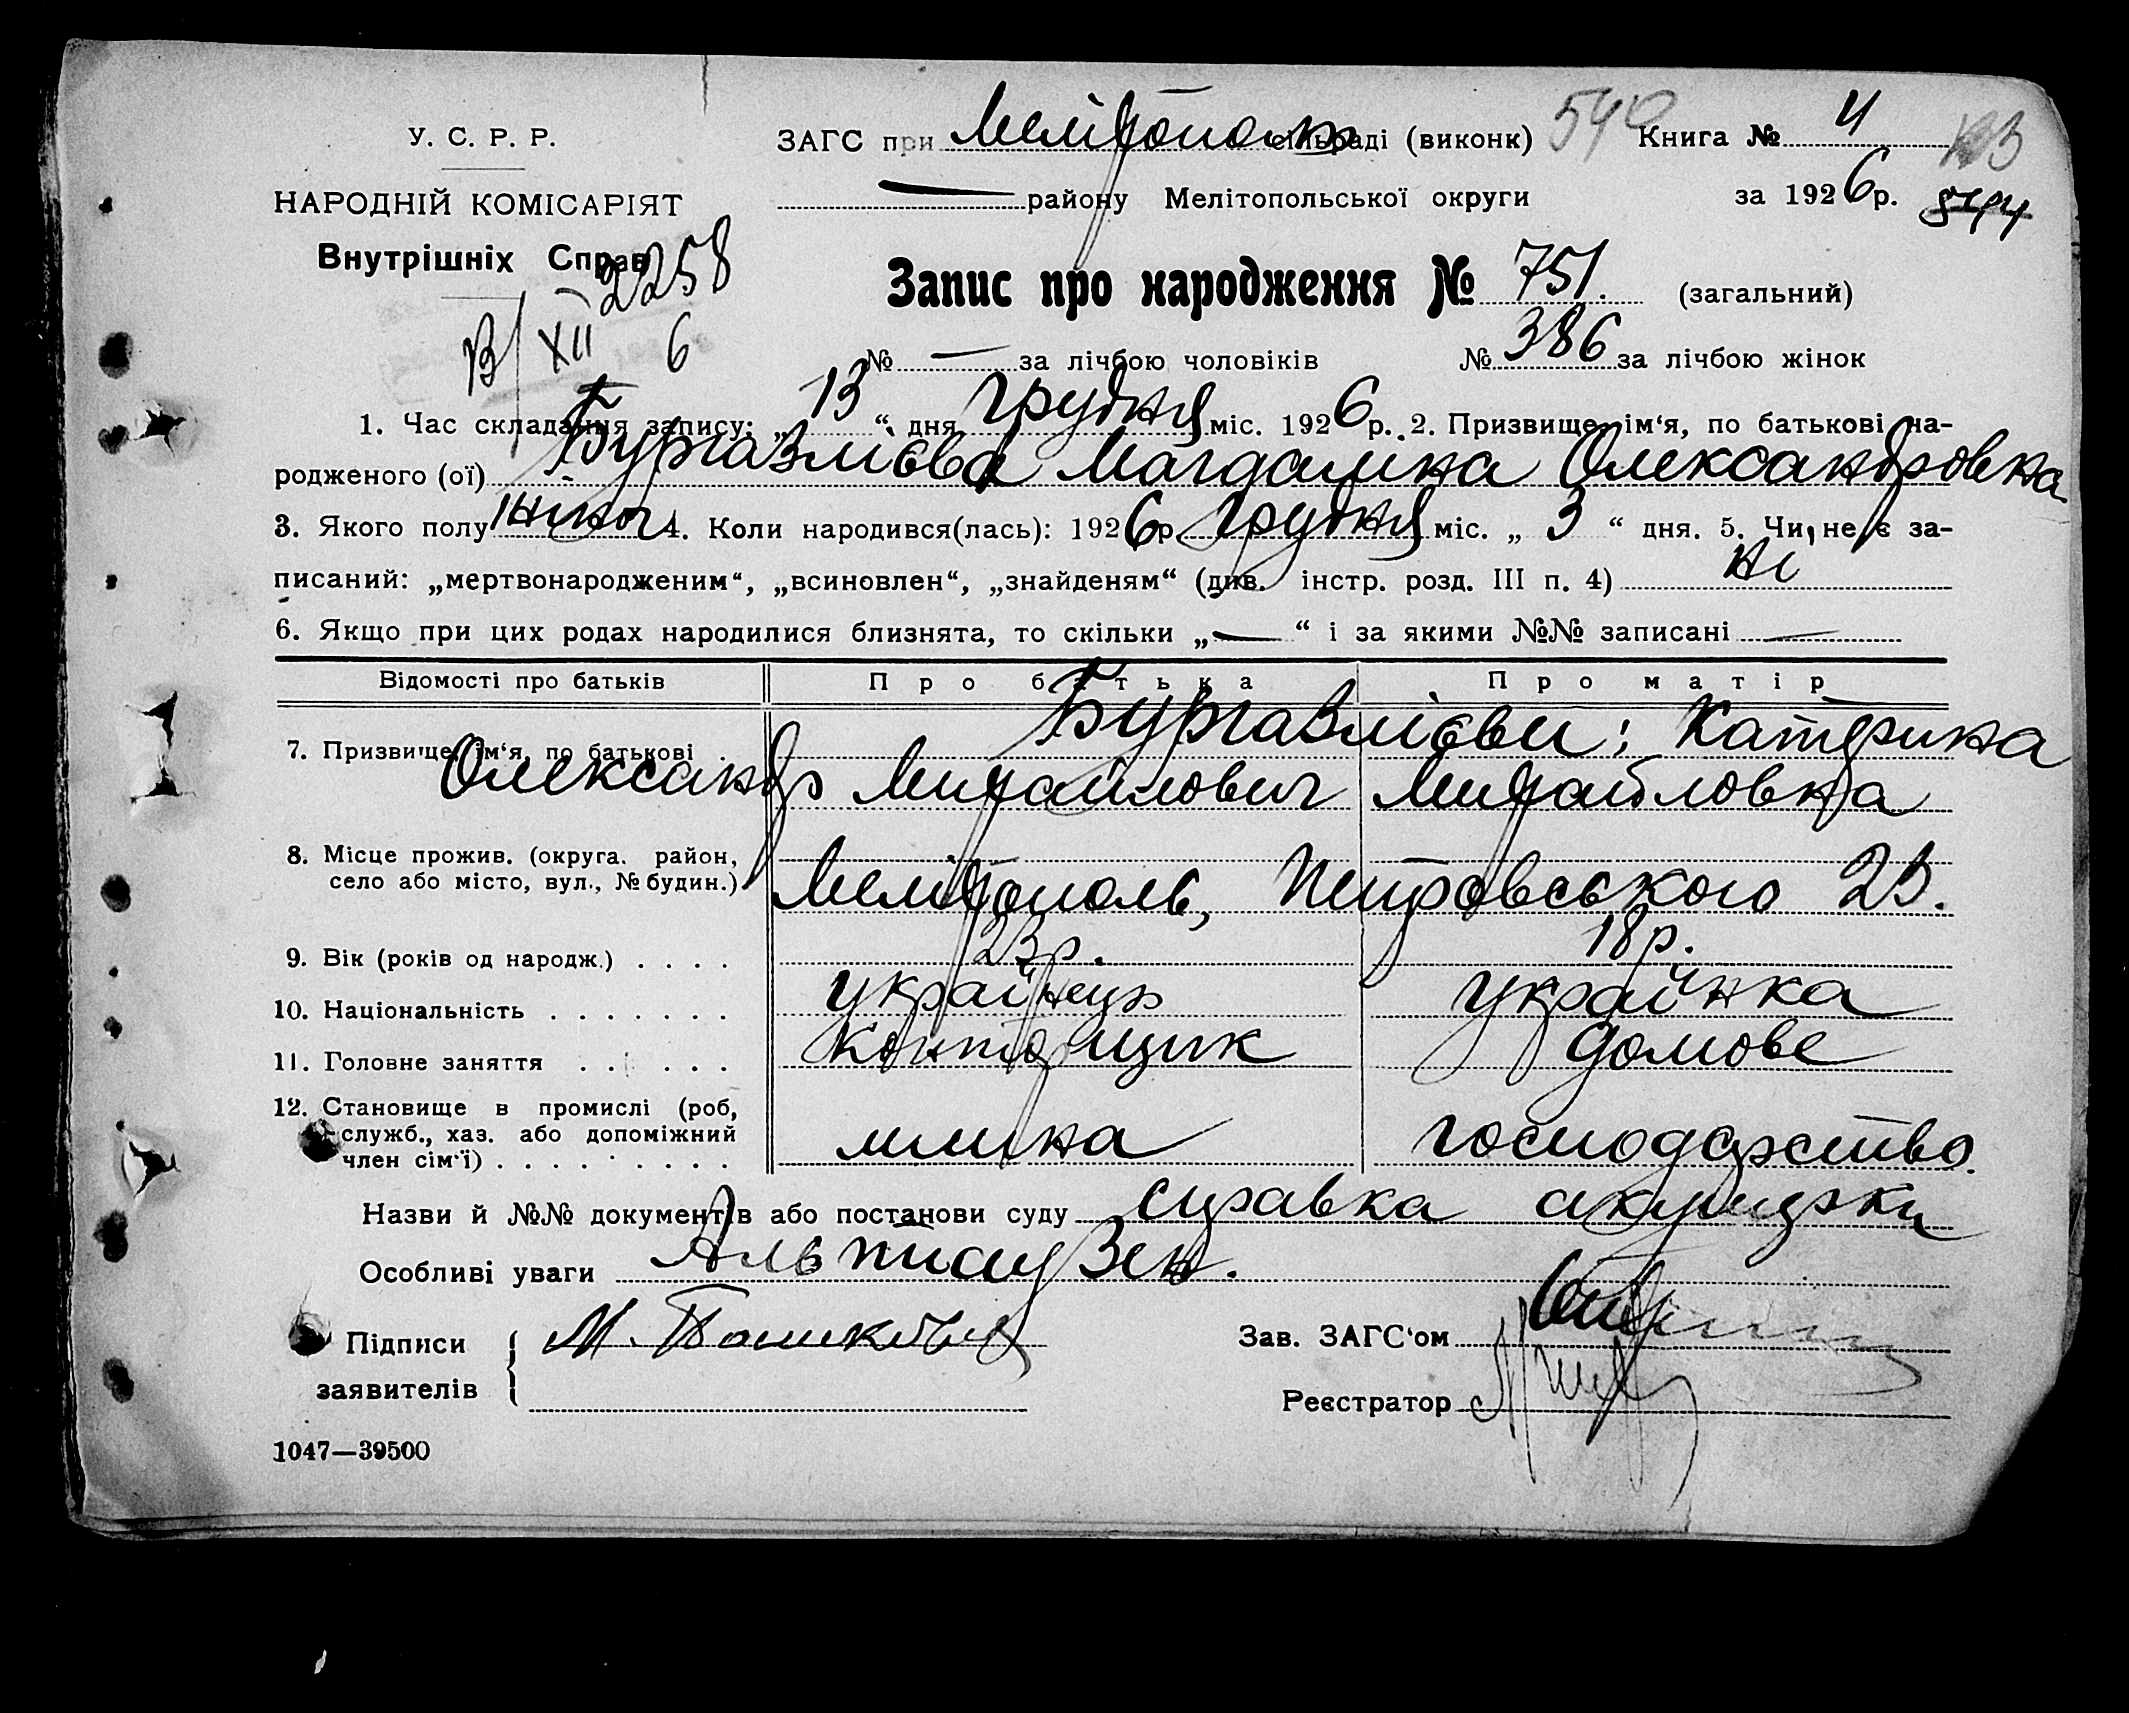 У. С. Р. Р.
НАРОДНІЙ КОМІСАРІЯТ
Внутрішніх Справ
2258
13/XII 6
ЗАГС при Мелітополь сільраді (виконк) 540 Книга № 4
— району Мелітопольської округи за 1926 р.
Запис про народження № 751. (загальний)
№ — за лічбою чоловіків № 386 за лічбою жінок
1. Час складання запису: „13“ дня грудня міс. 1926 р. 2. Призвище, ім‘я, по батькові на-
родженого (ої) Бургазлієва Магдалина Олександровна
3. Якого полу жіноч 4. Коли народився(лась): 1926 р. грудня міс. „3“ дня. 5. Чи не є за-
писаний: „мертвонародженим“, „всиновлен“, „знайденям“ (див. інстр. розд. III п. 4) ні
6. Якщо при цих родах народилися близнята, то скільки „—“ і за якими №№ записані —
Відомості про батьків Про батька Про матір
7. Призвище, ім‘я, по батькові Бургазлієви: Катерина
Олександр Михайлович Михайловна
8. Місце прожив. (округа. район,
село або місто, вул., № будин.) Мелітополь, Петровського 23.
9. Вік (років од народж.) . . . . 23 р. 18 р.
10. Національність . . . . . . . українець українка
11. Головне заняття . . . . . . конторщик домове
12. Становище в промислі (роб,
служб., хаз. або допоміжний
член сім‘ї) . . . . . . . . . господарство.
Назви й №№ документів або постанови суду справка акушерки
Особливі уваги Альтгаузен.
Підписи
заявителів
Зав. ЗАГС‘ом
Реєстратор
1047—39500